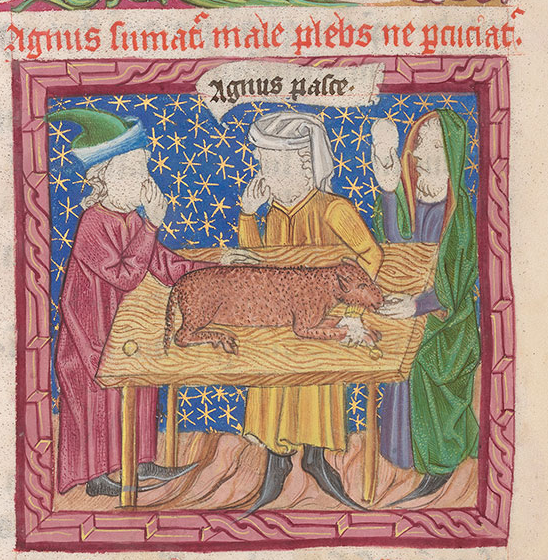 Agnus sumat᷑ male plebs ne ꝑcuciat᷑.
Agnus pasce.